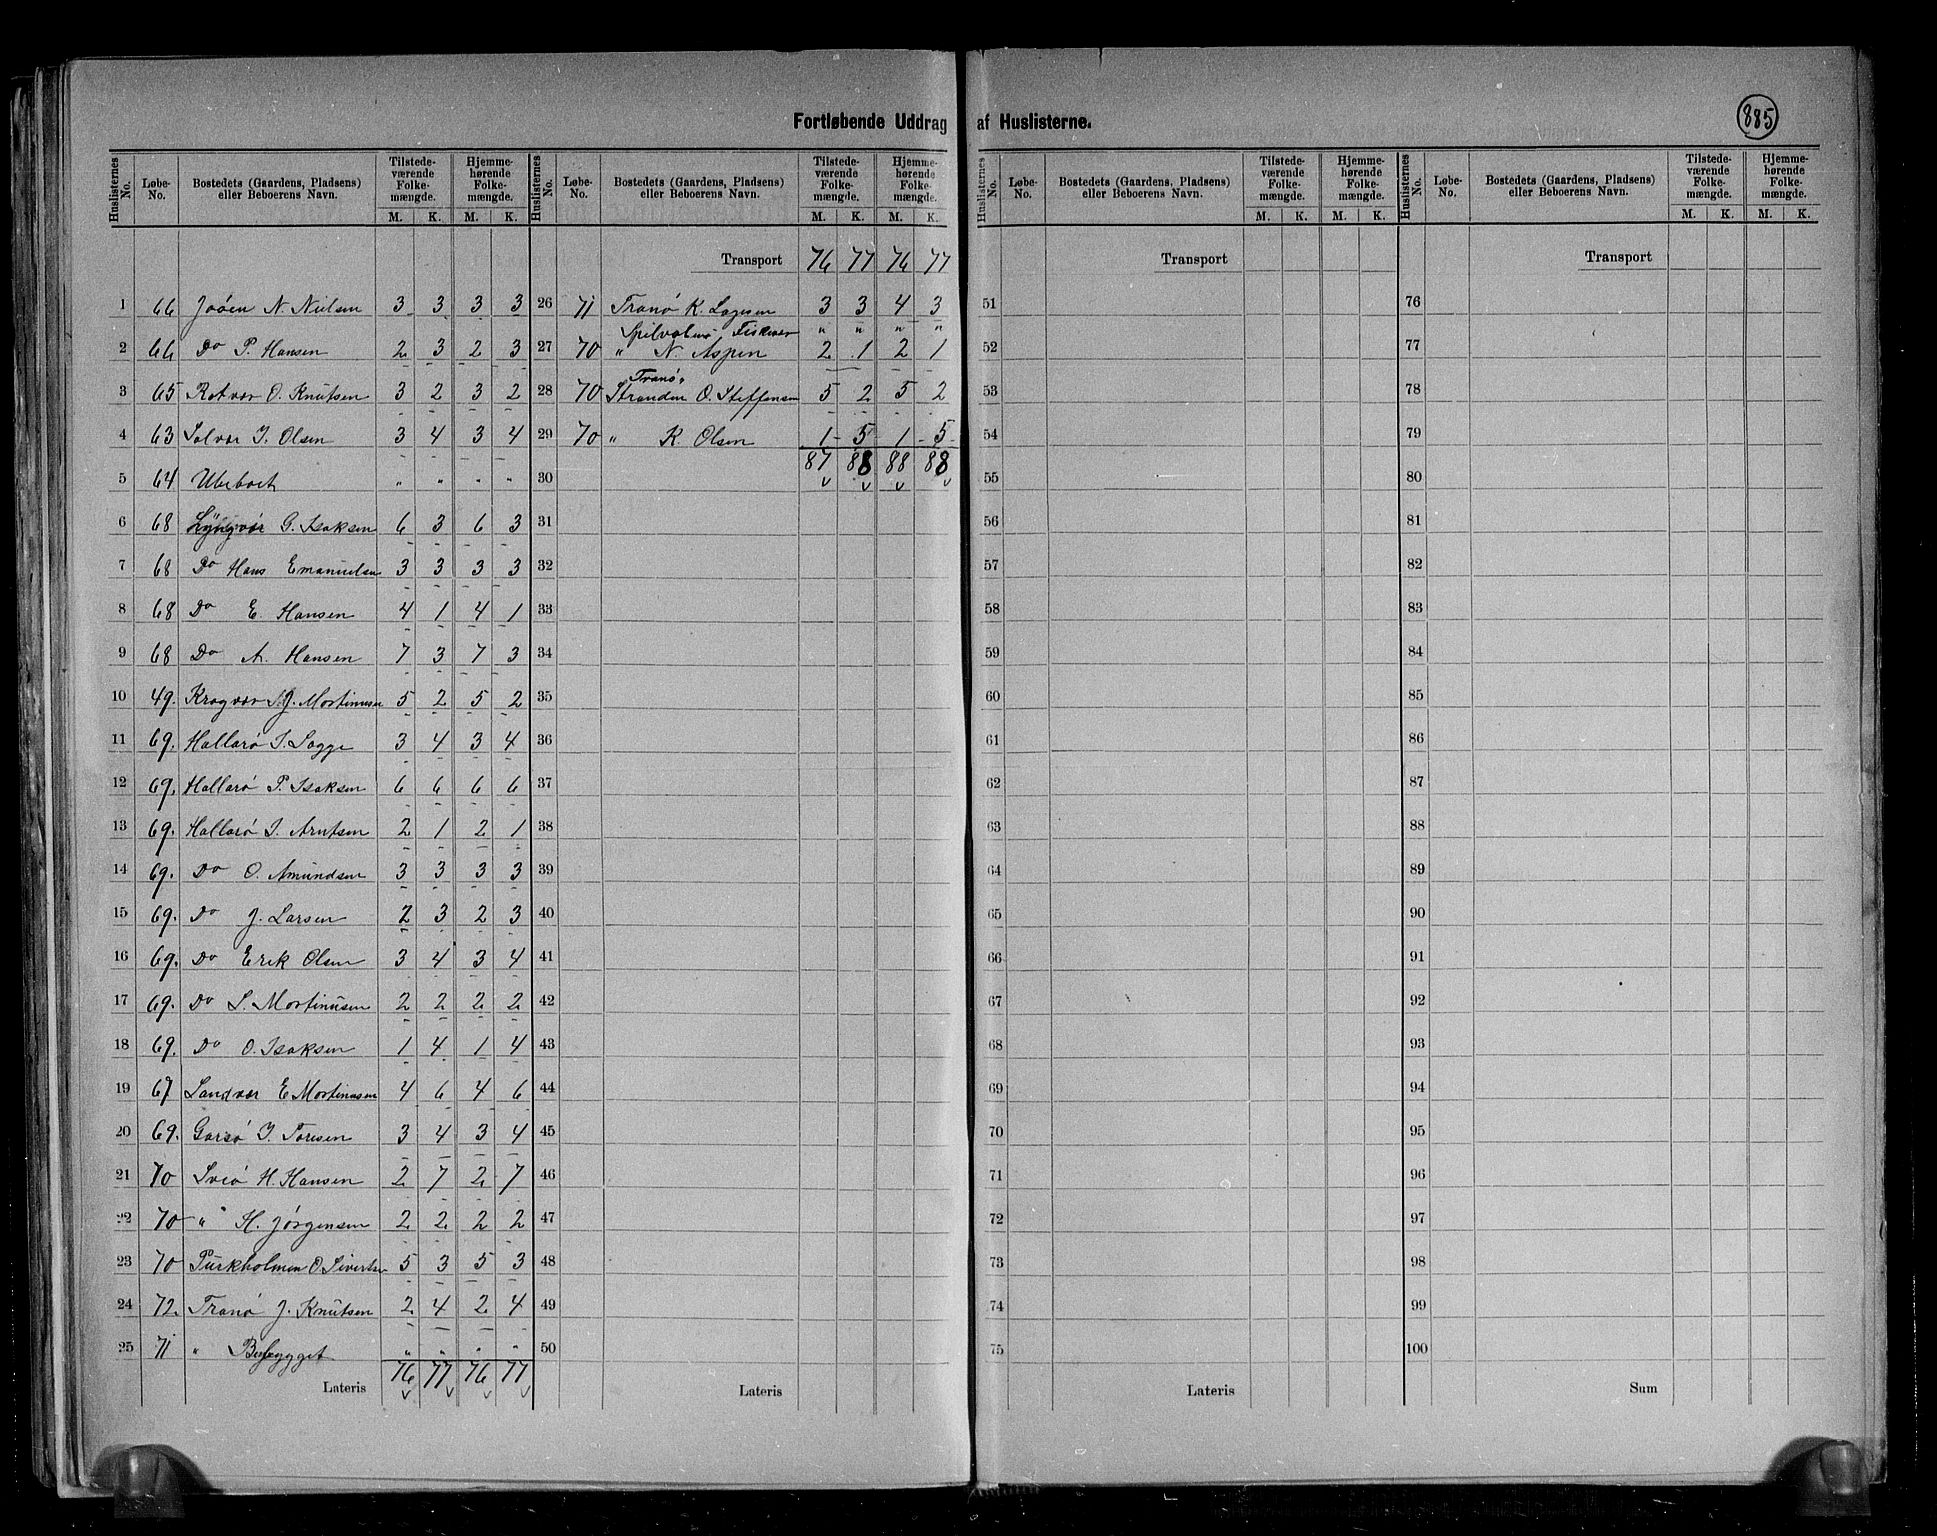 Fortløbende Uddrag af Huslisterne.
885
Huslisternes No. Løbe-No. Bostedets (Gaardens, Pladsens) eller Beboerens Navn. Tilstedeværende Folkemængde. M. K. Hjemmehørende Folkemængde. M. K.
1 66 N. Nielsen 3 3 3 3
2 66 Do P. Hansen 2 3 2 3
3 65 Rotvær O. Knutsen 3 2 3 2
4 63 Solvær J. Olsen 3 4 3 4
5 64 Ubeboet " " " "
6 68 Lyngvær G. Isaksen 6 3 6 3
7 68 Do Hans Emanuelsen 3 3 3 3
8 68 Do E. Hansen 4 1 4 1
9 68 Do A. Hansen 7 3 7 3
10 49. Kragvær J. Mortinusen 5 2 5 2
11 69. Hallarø J. Sagge 3 4 3 4
12 69. Hallarø P. Isaksen 6 6 6 6
13 69. Hallarø J. Arntsen 2 1 2 1
14 69. Do O. Amundsen 3 3 3 3
15 69. Do J. Larsen 2 3 2 3
16 69. Do Erik Olsen 3 4 3 4
17 69. Do S. Mortinusen 2 2 2 2
18 69. Do O. Isaksen 1 4 1 4
19 67 Sandvær E Mortinusen 4 6 4 6
20 69. Garsø J. Toresen 3 4 3 4
21 70 Sveø H. Hansen 2 7 2 7
22 70 " H. Jørgensen 2 2 2 2
23 70 Purkholmen O. Sivertsen 5 3 5 3
24 72. Tranø J. Knutsen 2 4 2 4
25 71 " Bebygget " " " "
Lateris 76 77 76 77
Huslisternes No. Løbe-No. Bostedets (Gaardens, Pladsens) eller Beboerens Navn. Tilstedeværende Folkemængde. M. K. Hjemmehørende Folkemængde. M. K.
Transport 76 77 76 77
26 71 Tranø K. 3 3 4 3
Fiskevær " " " "
27 70 " N. Aspen 2 1 2 1
Tranø
28 70 Stranden O. Steffensen 5 2 5 2
29 70 " K. Olsen 1 5 1 5
30 87 88 88 88
31
32
33
34
35
36
37
38
39
40
41
42
43
44
45
46
47
48
49
50
Lateris
Huslisternes No. Løbe-No. Bostedets (Gaardens, Pladsens) eller Beboerens Navn. Tilstedeværende Folkemængde. M. K. Hjemmehørende Folkemængde. M. K.
Transport
51
52
53
54
55
56
57
58
59
60
61
62
63
64
65
66
67
68
69
70
71
72
73
74
75
Lateris
Huslisternes No. Løbe-No. Bostedets (Gaardens, Pladsens) eller Beboerens Navn. Tilstedeværende Folkemængde. M. K. Hjemmehørende Folkemængde. M. K.
Transport
76
77
78
79
80
81
82
83
84
85
86
87
88
89
90
91
92
93
94
95
96
97
98
99
100
Sum